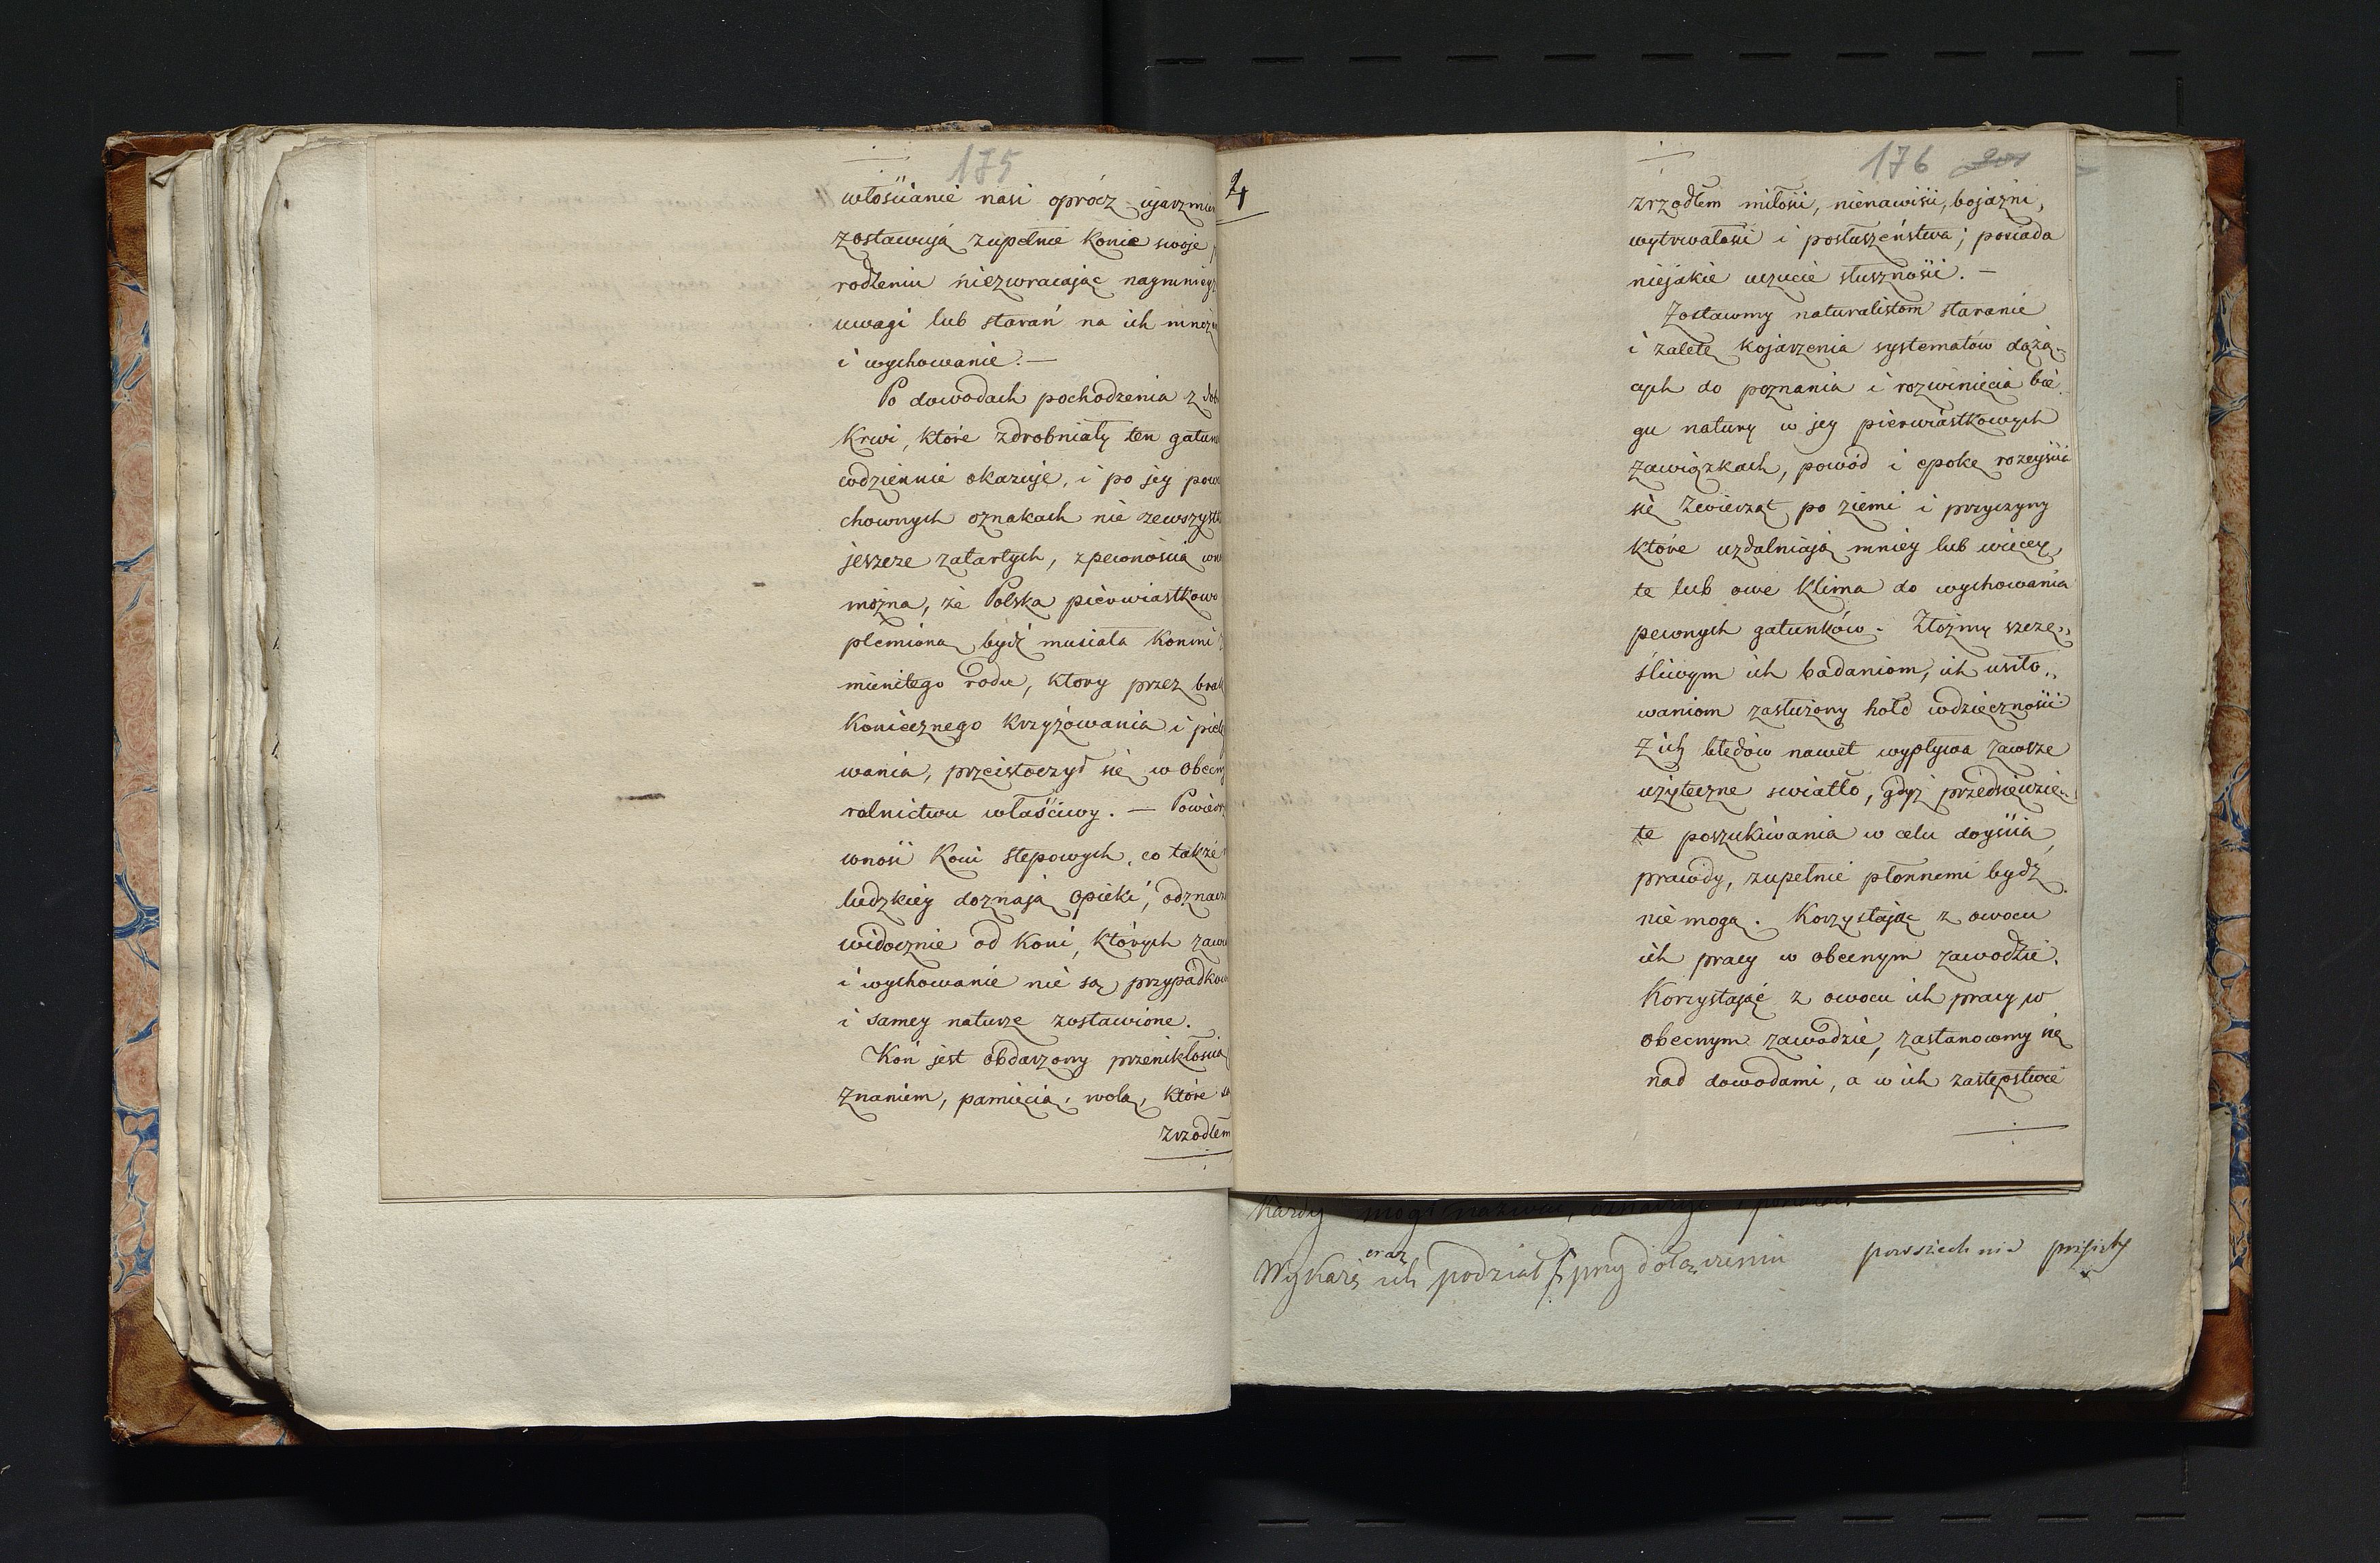 175
włościanie nasi oprócz ujarzmien
zostawują zupełnie konie swoje
rodzeniu niezwracając naymniey
uwagi lub starań na ich mnoże
i wychowanie. —
Po dowodach pochodzenia z dob
krwi, które zdrobniały ten gatun
codziennie okazuje, i po jey pow
chownych oznakach nie zewszystk
jeszcze zatartych, z pewnością wn
można, że Polska pierwiastkowo
plemiona bydź musiała końmi
mienitego rodu, ktory przez brak
koniecznego krzyżowania i piel
wania, przeistoczył się w obecny
rolnictwu właściwy. — Powierz
wność koni stepowych, co także
ludzkiey doznają opieki, odznacz
widocznie od koni, których zaw
i wychowanie nie są przypadkow
i samey naturze zostawione.
Koń jest obdarzony przenikłością
znaniem, pamięcią, wolą, które są
zrzodłem
4
176
zrzodłem miłości, nienawiści, bojaźni,
wytrwałości i posłuszeństwa; posiada
niejakie uczucie słuszności. —
Zostawmy naturalistom staranie
i zaletę kojarzenia systematów dążą„
cych do poznania i rozwinięcia bie„
gu natury w jey pierwiastkowych
zawiązkach, powód i epokę rozeyścia
się zwierząt po ziemi i przyczyny
które uzdalniają mniey lub więcey,
te lub owe klima do wychowania
pewnych gatunków. Złożmy szczę„
śliwym ich badaniom, ich usiło„
waniom zasłużony hołd wdzięczności
Z ich błędów nawet wypływa zawsze
użyteczne swiatło, gdyż przedsięwzię„
te poszukiwania w celu doyścia
prawdy, zupełnie płonnemi bydź
nie mogą. Korzystając z owocu
ich pracy w obecnym zawodzie.
Korzystając z owocu ich pracy w
obecnym zawodzie, zastanowmy się
nad dowodami, a w ich zastępstwie
każdy mogł nazwać, oznaczyć i
oraz
Wykażę ich podział przy dołączeniu powszechnie przyjęty